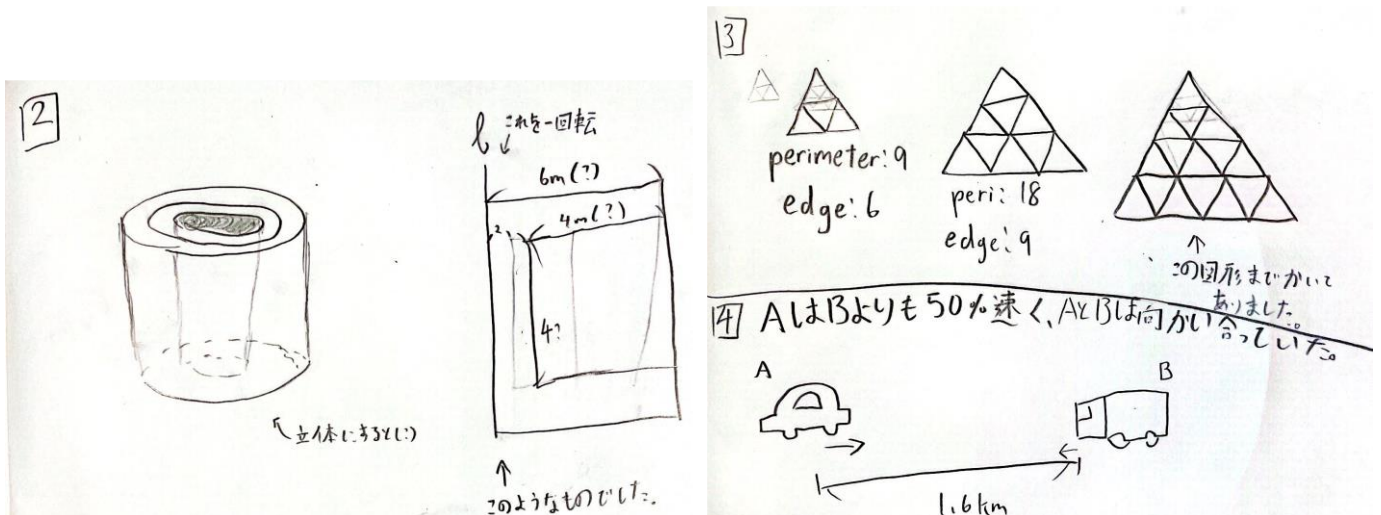 2
l
これを一回転
6m(?)
4m(?)
2
4?
↖立体にすると(?)
このようなものでした。
3
perimeter: 9
edge: 6
peri: 18
edge: 9
この図形までかいて
ありました。
4 AはBよりも50%速く、AとBは向かい合っていた。
A
B
1.6km